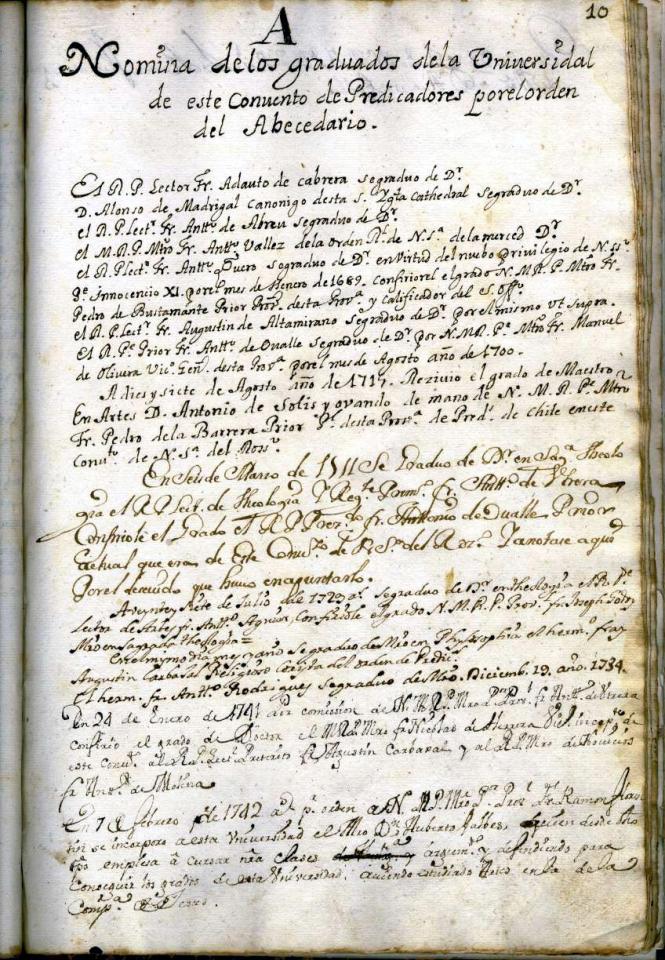 A
10
Nomina de los graduados dela Universidad
de este Convento de Predicadores por el orden
del Abecedario.
El R. P. Lector Fr. Adauto de Cabrera se graduo de Dr.
D. Alonso de Madrigal Canonigo desta S. Yglia Cathedral se graduo de Dr.
el R. P. Lectr. Fr. Antto. de Abreu se graduo de Dr.
el M. R. P. Mtro. Fr. Antto. Vallez de la Orden Rl. de N. Sa. de la merced Dr.
el R. P. Lectr. Fr. Antto. Quero se graduo de Dr. en virtud del nuebo Privilegio de N. SSo.
Pe. Innocencio XI. por el mes de Henero de 1689. confiriole el grado N. M. R. P. Mtro. Fr.
Pedro de Bustamante Prior Provl. desta Prova. y calificador del S. Offo.
el R. P. Lectr. Fr. Augustin de Altamirano se graduo de Dr. por el mismo vt supra.
El R. Pe. Prior Fr. Antto. de Ovalle se graduo de Dr. por N. M. R. Pe. Mtro. Fr. Manuel
de Olivera Vico. Genl. desta Prova. por el mes de Agosto año de 1700.
A dies y siete de Agosto año de 1717. Rezivio el grado de Maestro
En Artes D. Antonio de Solis y ovando de mano de N. M. R. Pe. Mtro.
Fr. Pedro de la Barrera Prior Pl. desta Prova. de Predr. de Chile en este
Convto. de N. Sa. del Rosro.
En Seis de Marzo de 1711 Se Graduo de Dr. en Saga. Theolo
gia el R P Lect. de Theologia Y Regte. fr. Antto. de
Confiriole el Grado el R. P. fr. Anttonio de Ovalle Prior
actual que era de este Convto. de N. Sra. del Rozo. Y anotase aqui
Por el descuido que huvo en apuntarlo.
A veynte y siete de Julio del 1729 as. se graduo de Dr. en theologia el R. Pe.
Lector de Artes fr. Antto. Aguiar, Confiriole el grado N. M. R. P. Provl. fr. Joseph
Mro en Sagrada theologia
En el mismo dia mes y año se graduo de Mro en Philosophia el hermo. fray
Augustin Carbajal Religioso Corista del orden de Predicr.
El herm. fr. Antto. Rodriguez se graduo de Mro. Diciemb. 19. año. 1734.
En 24 de Enero de 1741 por comission de N. M R P. Mro Dr. Provl. fr Antto. de
Confirio el grado de Doctor el M R P. Mro fr Nicolas de Herrera
este Convto. al R. P. Fr. Agustin Carbajal y al R. P. Mro de Novicios
fr Anto. de Molina
En 7 de febrero de 1742 por orden de N. M. P. Mro Dr. Provl. Fr. Ramon
se incorporo a esta Universidad el Mro Dn. Huberto Valdes, desde
empiesa a cursar nra clases y defendiendo para
Conseguir los grados de esta Universidad. auiendo estudiado en la de la
Compa. de Jesus.